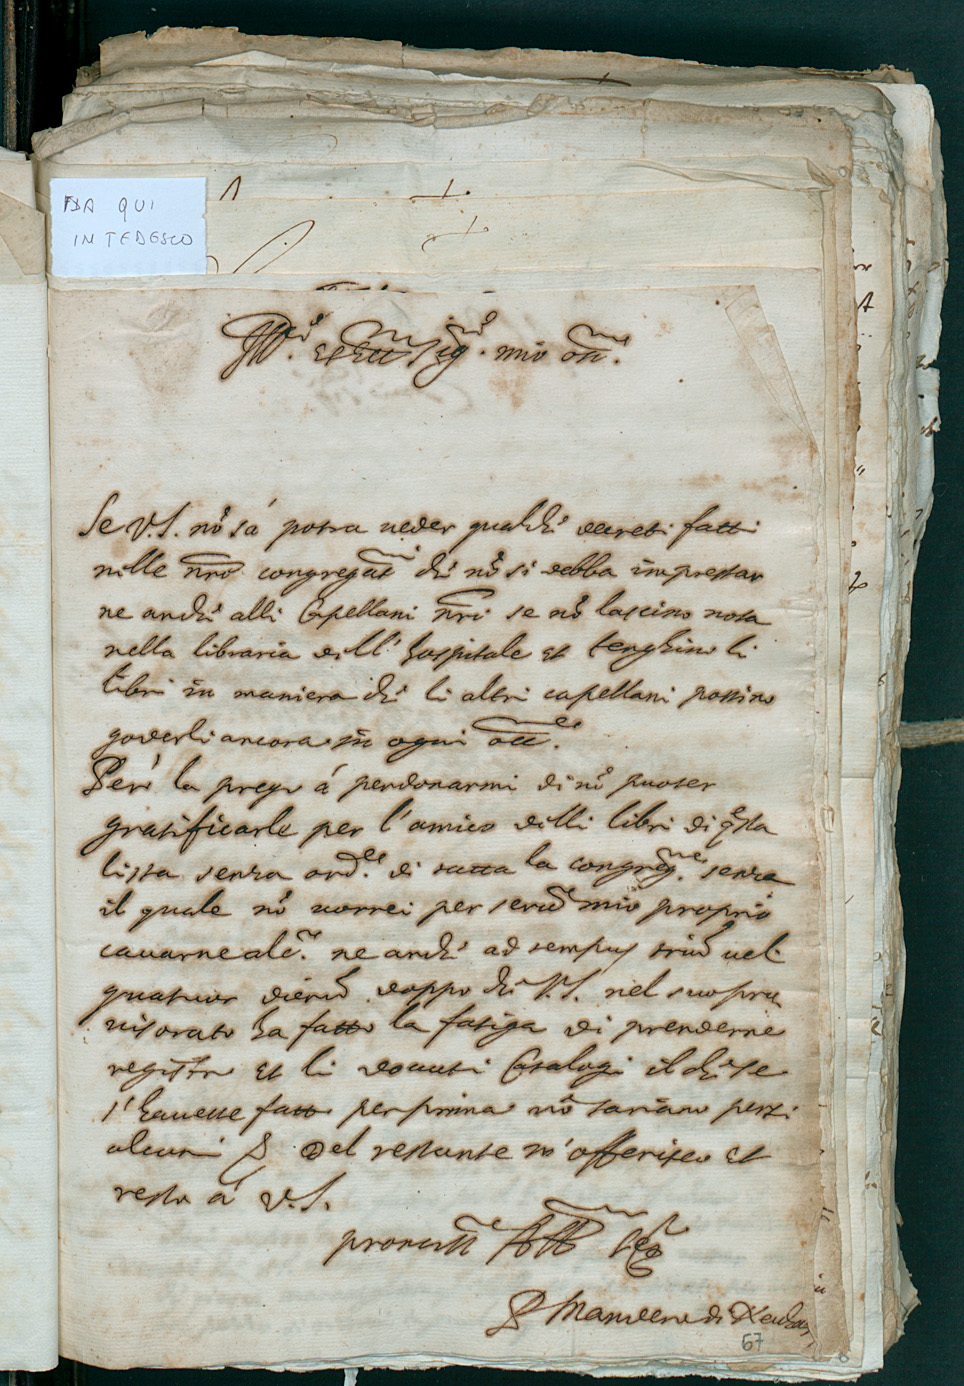 DA QUI
IN TEDESCO
Ill.re et Ecc.mo Sig.re mio oss.mo
Se V.S. nõ sà potra ueder qualche decreti fatti
nille nr̃o congregat.ni che nõ si debba imprestar
ne anche alli Capellani nr̃i se nõ lascino nota
nella libraria dell' hospitale et tenghino li
libri in maniera che li altri capellani possino
goderli ancora in ogni occ.ne
Però la prego á perdonarmi di nõ puoter
gratificarle per l'amico delli libri di q̃sta
lista senza ord.e di tutta la congreg.ne senza
il quale nõ uorrei per seru.o mio proprio
cauarne alc.o ne anche ad tempus triũ uel
quatuor dierũ doppo che V.S. nel suo pri
uisorato ha fatto la fatiga di prenderne
registro et li douuti Catalogi il che se
l'hauesse fatto per prima nõ sariano persi
alcuni Del restante m'offerisco et
resto á V.S.
67